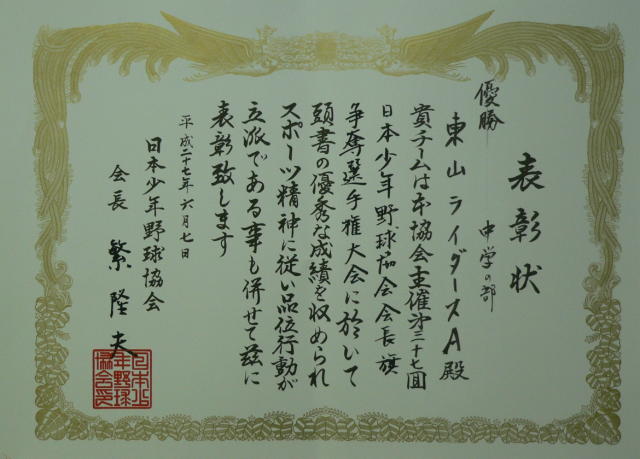 表彰状
中学の部
優勝
東山ライダースA殿
貴チームは本協会主催才三十七回
日本少年野球協会会長旗
争奪選手権大会に於いて
頭書の優秀な成績を収められ
スポーツ精神に従い品位行動が
立派である事も併せて茲に
表彰致します
平成二十七年六月七日
日本少年野球協会
会長 繁隆夫
日本少年野球協会印